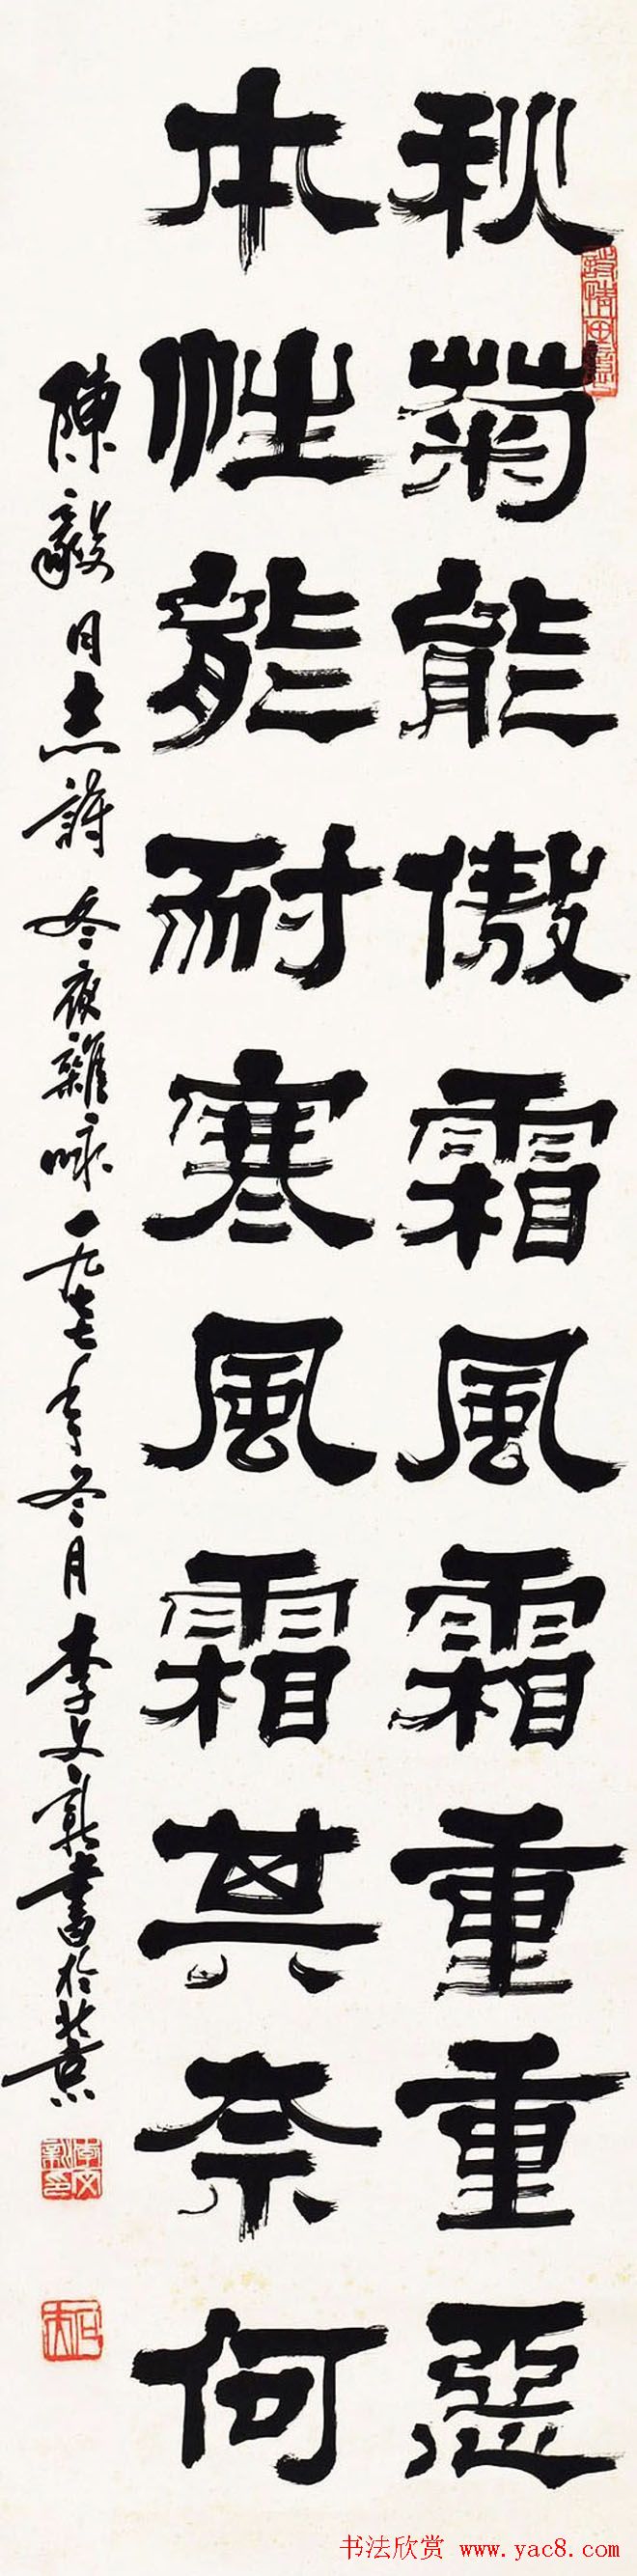 秋菊能傲霜風霜重重惡
本性能耐寒風霜其奈何
陳毅同志詩 冬夜雜咏 一九七七年冬月 李文新書於北京
詩情画意
李文新印
书法欣赏 www.yac8.com